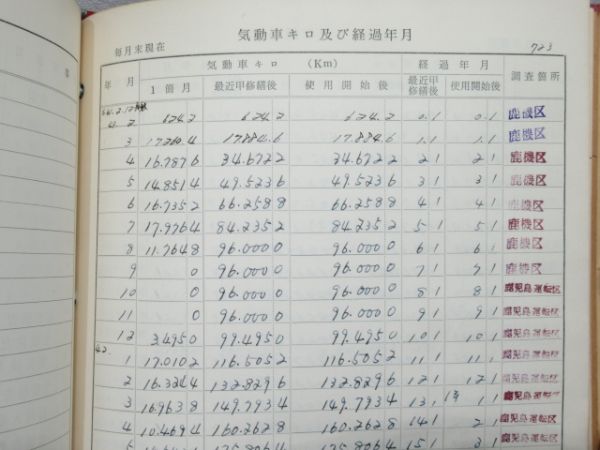 気動車キロ及び経過年月
毎月末現在 723
年 月 気動車キロ (Km) 経過年月 調査箇所
1個月 最近甲修繕後 使用開始後 最近甲修繕後 使用開始後
2 624.2 624.2 624.2 0.1 0.1 鹿機区
3 17.260.4 17.884.6 17.884.6 1.1 1.1 鹿機区
4 16.787 6 34.672 2 34.672 2 2 1 2 1 鹿機区
5 14.851 4 49.523 6 49.523 6 3 1 3 1 鹿機区
6 16.735 2 66.258 8 66.258 8 4 1 4 1 鹿機区
7 17.976 4 84.235 2 84.235 2 5 1 5 1 鹿機区
8 11.764 8 96.000 0 96.000 0 6 1 6 1 鹿機区
9 0 96.000 0 96.000 0 7 1 7 1 鹿機区
10 0 96.000 0 96.000 0 8 1 8 1 鹿児島運転区
11 0 96.000 0 96.000 0 9 1 9 1 鹿児島運転区
12 3.495 0 99.495 0 99.495 0 10 1 10 1 鹿児島運転区
1 17.010 2 116.505 2 116.505 2 11 1 11 1 鹿児島運転区
2 16.324 4 132.829 6 132.829 6 12 1 12 1 鹿児島運転区
3 16.963 8 149.793 4 149.793 4 13 1 1 1 鹿児島運転区
4 10.469 4 160.262 8 160.262 8 14 1 2 1 鹿児島運転区
5 175.806 4 175.806 4 15 1 3 1 鹿児島運転区